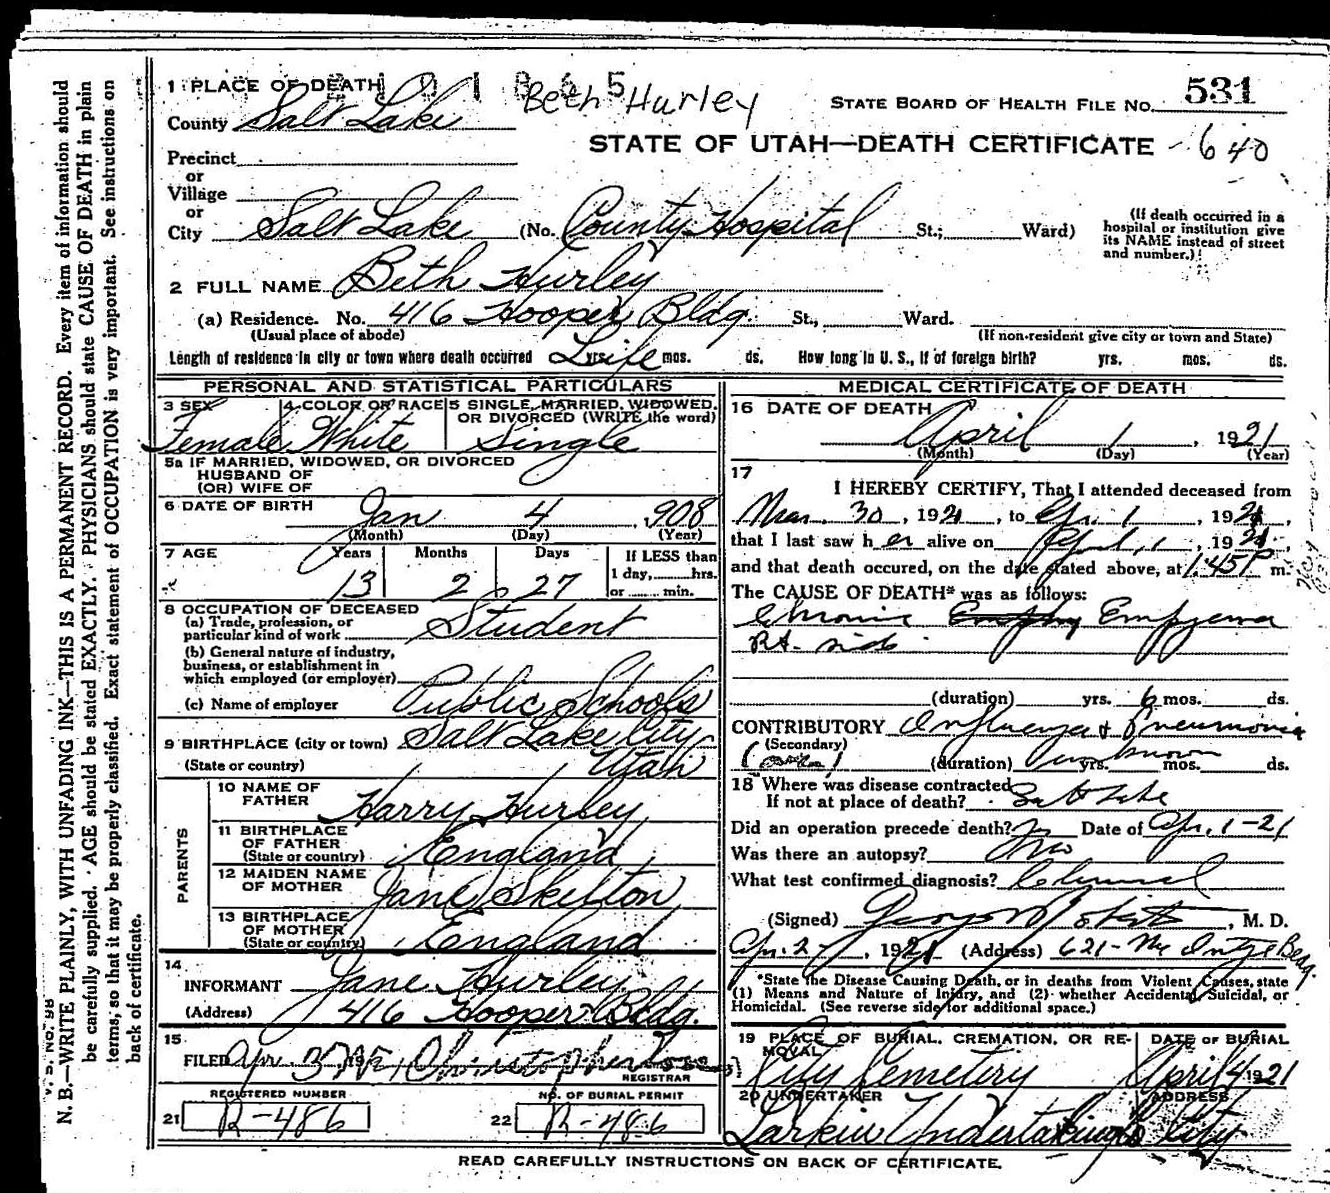 1 PLACE OF DEATH
Beth Hurley
STATE BOARD OF HEALTH FILE NO. 531
County Salt Lake
STATE OF UTAH—DEATH CERTIFICATE - 640
Precinct
or
Village
or
City Salt Lake (No. County Hospital St.; Ward)
(If death occurred in a hospital or institution give its NAME instead of street and number.)
2 FULL NAME Beth Hurley
(a) Residence. No. 416 Hooper Bldg. St., Ward.
(Usual place of abode) (If non-resident give city or town and State)
Length of residence in city or town where death occurred Life yrs. mos. ds. How long in U. S., if of foreign birth? yrs. mos. ds.
PERSONAL AND STATISTICAL PARTICULARS
3 SEX Female
4 COLOR OR RACE White
5 SINGLE, MARRIED, WIDOWED, OR DIVORCED (WRITE the word) Single
5a IF MARRIED, WIDOWED, OR DIVORCED
HUSBAND OF
(OR) WIFE OF
6 DATE OF BIRTH Jan 4, 908
(Month) (Day) (Year)
7 AGE Years Months Days If LESS than
1 day, hrs.
13 2 27 or min.
8 OCCUPATION OF DECEASED
(a) Trade, profession, or
particular kind of work Student
(b) General nature of industry,
business, or establishment in
which employed (or employer)
(c) Name of employer Public Schools
9 BIRTHPLACE (city or town) Salt Lake City
(State or country) Utah
PARENTS
10 NAME OF
FATHER Harry Hurley
11 BIRTHPLACE
OF FATHER
(State or country) England
12 MAIDEN NAME
OF MOTHER Jane Skelton
13 BIRTHPLACE
OF MOTHER
(State or country) England
14
INFORMANT Jane Hurley
(Address) 416 Hooper Bldg.
15
FILED Apr. 3
REGISTRAR
REGISTERED NUMBER
21 R-486
NO. OF BURIAL PERMIT
22 R-486
MEDICAL CERTIFICATE OF DEATH
16 DATE OF DEATH
April 1, 1921
(Month) (Day) (Year)
17
I HEREBY CERTIFY, That I attended deceased from
Mar. 30, 1921, to Apr. 1, 1921,
that I last saw her alive on April 1, 1921,
and that death occured, on the date stated above, at 1:45 P m.
The CAUSE OF DEATH* was as follows:
Chronic Empyema
Rt. side
(duration) yrs. 6 mos. ds.
CONTRIBUTORY Influenza & Pneumonia
(Secondary)
(over) (duration) unknown yrs. mos. ds.
18 Where was disease contracted
If not at place of death? Salt Lake
Did an operation precede death? Date of Apr. 1-21
Was there an autopsy? no
What test confirmed diagnosis? Clinical
(Signed) , M. D.
Apr. 2, 1921 (Address) 621 - Mc Intyre Bldg.
*State the Disease Causing Death, or in deaths from Violent Causes, state
(1) Means and Nature of Injury, and (2) whether Accidental, Suicidal, or
Homicidal. (See reverse side for additional space.)
19 PLACE OF BURIAL, CREMATION, OR RE-
MOVAL
City Cemetery
DATE OF BURIAL
April 4 1921
20 UNDERTAKER
Larkin Undertaking
ADDRESS
City
READ CAREFULLY INSTRUCTIONS ON BACK OF CERTIFICATE.
V. S. NO. 98
N. B.—WRITE PLAINLY, WITH UNFADING INK—THIS IS A PERMANENT RECORD. Every item of information should
be carefully supplied. AGE should be stated EXACTLY. PHYSICIANS should state CAUSE OF DEATH in plain
terms, so that it may be properly classified. Exact statement of OCCUPATION is very important. See instructions on
back of certificate.